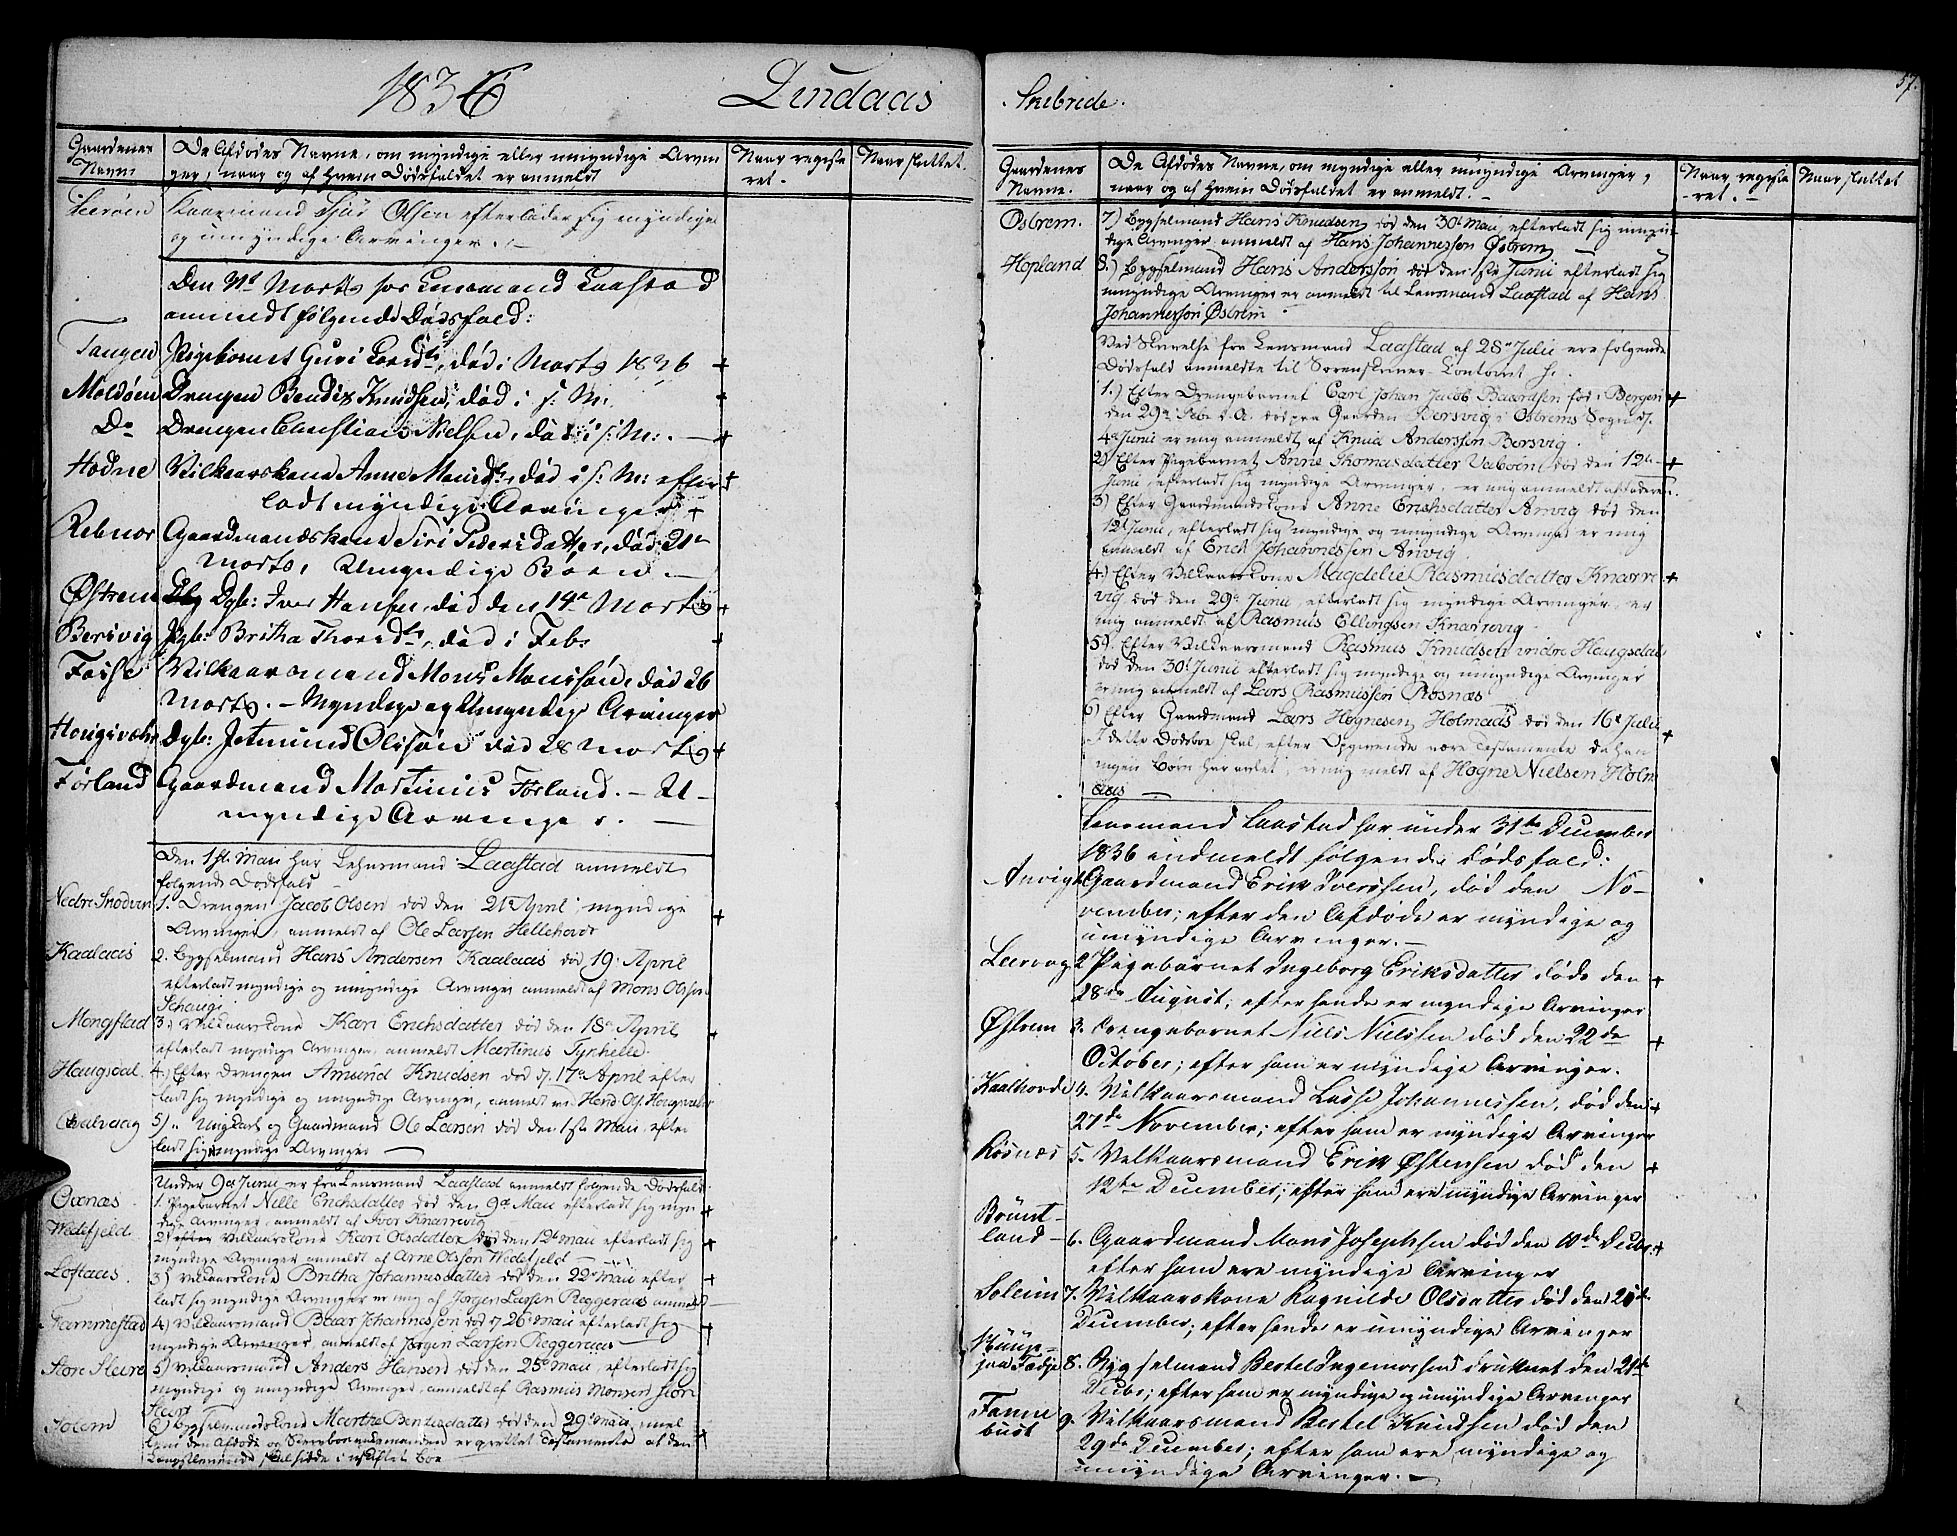 1836 Lindaas
Gaardenes Navn
De Afdødes Navne, om myndige eller umyndige Arvin
ger, naar og af hvem Dødsfaldet er anmeldt
Naar registe
ret.
Naar sluttet.
Kaarmand Siur Olsen efterlader sig myndige
og umyndige Arvinger. -
Den Marts har Lensmand Laastad
anmeldt følgende Dødsfald:
Tangen Pigebarnet Guri død i Marts 1836 +
Moldøen Drengen Bendix Knudsen, død i s: M:
Do Drengen Christian Nielsen, død i s: M: . - +
Hodne Vilkaarskone Anne død i s: M: efter +
ladt myndige Arvinger +
Rebnor Gaardmandskone Siri Pedersdatter, død 21de
Marts, Umyndige Børn. -
Østrem Dgb: Iver Hansen, død den 19de Marts +
Bersvig Pgb: Britha død i Feb. +
Fosse Vilkaarsmand Mons Monssøn, død 26
Marts. - Myndige og Umyndige Arvinger
Dgb: Jetmund Olssøn død 28 Marts +
Førland Gaardmand Martinus Førland. - U-
myndige Arvinger. -
Den 1ste Maii har Lehnsmand Laastad anmeldt
følgende Dødsfald -
Nedre 1. Drengen Jacob Olsen død den 21de April, myndige +
Arvinger, anmeldt af Ole Larsen
Kaalaas 2. Bygselmand Hans Andersen Kaalaas død 19. April
efterladt myndige og umyndige Arvinger anmeldt af Mons Olsen
Mongstad 3) Vilkaarskone Kari Erichsdatter død den 18de April +
efterladt myndige Arvinger, anmeldt Martinus
Haugsdal. 4) Efter Drengen Amund Knudsen død d. 17de April efter
ladt sig myndige og umyndige Arvinger, anmeldt
5) Ungkarl og Gaardmand Ole Larsen død den 1ste Maii, efter
ladt sig myndige Arvinger -
Under 9de Junii er fra Lensmand Laastad anmeldt følgende Dødsfald
Oxnæs 1. Pigebarnet Nille Erichsdatter død den 9de Maii efterladt sig myn +
dige Arvinger, anmeldt af Iver Knarrevig
Wedefjeld 2) efter Vilkaarskone Kari Olsdatter død den 12te Maii efterladt sig +
myndige Arvinger anmeldt af Arne Olsson Wedefjeld -
Loftaas. 3) Vilkaarskone Britha Johannesdatter død den 22de Maii efter +
ladt sig myndige Arvinger er mig af Jørgen Larsen anmeldt -
Fammestad 4) Vilkaarsmand Baar Johannesson død d 26de Maii efterladt sig +
myndige Arvinger, anmeldt af Jørgen Larsen
5) Vilkaarsmand Anders Hansen død den 25de Maii, efterladt sig
myndige og umyndige Arvinger, anmeldt af Rasmus Monsen
6) Bygselmandskone Martha død den 29de Maii, +
Skibrede.
57.
Gaardenes
Navne.
De Afdødes Navne, om myndige eller umyndige Arvinger,
naar og af hvem Dødsfaldet er anmeldt. -
Naar registe
-ret. -
Naar sluttet
Østrem. 7) Bygselmand Hans Knudsen død den 30te Maii, efterladt sig myn
dige Arvinger anmeldt af Hans Johannessøn Østrem
Hopland 8.) Bygselmand Hans Anderssøn død den 1ste Junii efterladt sig
myndige Arvinger er anmeldt til Lensmand Laastad af Hans
Johannessøn Østrem
Ved Skrivelse fra Lensmand Laastad af 28de Julii ere følgende
Dødsfald anmeldte til Sorenskriver-Contoret
1.) Efter Drengebarnet Carl Johan Jacob Baardsen fød i Bergen +
den 29de Feb. d.A. død paa Gaarden Bersvig i Østrems Sogn d.
4de Junii er mig anmeldt af Knud Anderssen Bersvig.
2) Efter Pigebarnet Anne Thomasdatter død den 12te +
Junii, efterladt sig myndige Arvinger, er mig anmeldt af faderen.
3) Efter Gaardmandskone Anne Erichsdatter Anvig død den
12te Junii, efterladt sig myndige og umyndige Arvinger er mig
anmeldt af Erich Johannessen Anvig
4) Efter Vilkaarskone Magdelie Rasmusdatter Knarre +
vig, død den 29de Junii, efterladt sig myndige Arvinger, er
mig anmeldt af Rasmus Ellingsen Knarrevig
5) Efter Vilkaarsmand Rasmus Knudsen indre Haugsdal
død den 30te Junii efterladt sig myndige og umyndige Arvinger
er mig anmeldt af Lars Rasmussen Rosnæs
6) Efter Gaardmand Lars Hognesen Holmaas død den 16de Julii +
I dette Dødsboe skal, efter Opgivende være Testamente da han
ingen Børn har avlet, er mig meldt af Hogne Nielsen Holm
aas -
Lensmand Laastad har under 31te December
1836 indmeldt følgende dødsfald:
Anvig 1. Gaardmand Erik Iverssen, død den No-
vember; efter den Afdøde er myndige og
umyndige Arvinger. -
Leervog 2. Pigebarnet Ingeborg Eriksdatter døde den +
28de August; efter hende er myndige Arvinger
Østrem 3. Drengebarnet Niels Nielssen død den 22de +
October; efter ham er myndige Arvinger.
Kaalhovde 4. Vilkaarsmand Lasse Johannessen, død den +
27de November; efter ham er myndige Arvinger
Rosnæs 5. Vilkaarsmand Erik Østensen død den +
12te December; efter ham ere myndige Arvinger
land - 6. Gaardmand Mons Josephsen død den 10de Decbr. +
efter ham ere myndige Arvinger
Soleim 7. Vilkaarskone Ragnilde Olsdatter død den 21de
December; efter hende er umyndige Arvinger
8. Bygselmand Bertel Ingemorsen druknet den 21de
Decbr; efter ham er myndige og umyndige Arvinger
Fanne
bust 9. Vilkaarsmand Bertel Knudsen død den
29de December; efter ham ere myndige og
umyndige Arvinger. -